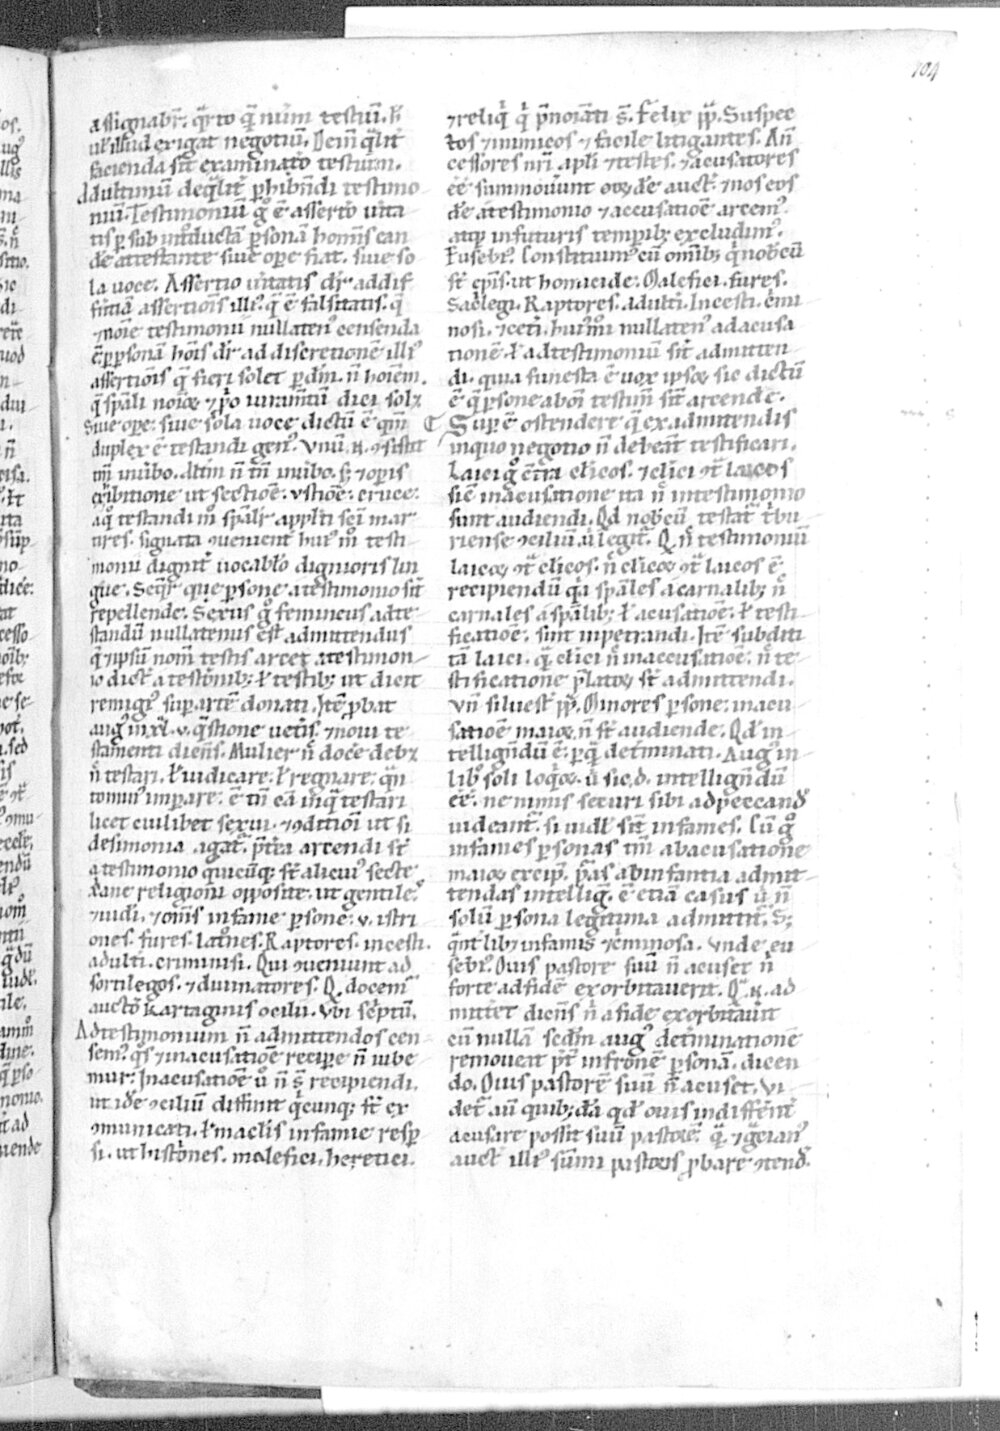 104
assignabr̄. q̄rto q̄ nūm testiū. R̄
ul illud exigat negotiū. Deiñ q̄lit̄
facienda sit examinatō testium.
Ad ultimū de q̄lit̄ ꝑhibn̄di testimo
niū. Testimoniū gͦ ē assertō uita
tis ꝑ sub introductā ꝑsonā homīs can
de attestante siue oꝑe fiat. siue so
la uoce. Assertio uitatis dr̄ ad dif
fītiā assertiōis illiꝰ. q̄ ē falsitatis. q̄
⁊ noīe testimonii nullatenꝰ censenda
ē. ꝑ ꝑsonā hoīs dr̄ ad discretionē illiꝰ
assertiōis q̄ fieri solet ꝑ dm̄. n̄ hoīem.
siue oꝑe: siue sola uoce dictū ē qm̄
duplex ē testandi genꝰ. Vnū
tm̄ in uerbo. Altm̄ n̄ tm̄ in uerbo. sꝫ ⁊ oꝑis
exhibitione ut sectiōe. ustiōe. cruce.
tires. signata
monii dignit̄ uocablo dignioris lin
gue. Seqr̄ que ꝑsone a testimonio sīt
repellende. Sexus gͦ femineus ad te
standū nullatenus est admittendus
q̄ ⁊ ipsū nom̄ testis arcet a testimon
io dict̄ a testōnibꝫ ł testibꝫ ut dicit
remigiꝰ suꝑ artē donati. Itē ꝓbat
augꝰ in xl. v. q̄stione uetīs. ⁊ noui te
stamenti dicēs. Mulier n̄ docē debꝫ
n̄ testari. ł iudicare. ł regnare. q̄n
tominꝰ imꝑare. ē tn̄ cā in q̄ testari
licet cuilibet sexui. ⁊ ꝯditiōi ut si
de simonia agat̄. p̄t̄ea arcendi st̄
a testimonio quicūqꝫ st̄ alicuiꝰ secte
x̄ane religioni opposite. ut gentiles
⁊ iudi. ⁊ om̄s infame ꝑsone. v. istri
ones. fures. latones. Raptores. incesti.
adulti. criminosi. Qui ꝯueniunt ad
sortilegos. ⁊ diuinatores. Q̄ docem̄
auctō kartaginis ꝯcilii. Vbi sc̄ptū.
Ad testimonium n̄ admittendos cen
semꝰ. q̄s ⁊ in acusatiōe reciꝑe n̄ iube
mur. In acusatiōe uͦ n̄ s̄ recipiendi.
ut idē ꝯciliū diffinit q̄cunqꝫ st̄ ex
ꝯmunicati. ł maclis infamie resꝑ
si. ut histōnes. malefici. heretici.
⁊ reliq̄ q̄ p̄noīati s̄. Felix p̄p̄. Suspec
tos ⁊ inimicos ⁊ facile litigantes. An̄
cessores nr̄i apl̄i ⁊ testes. ⁊ acusatores
eē summouunt eoꝝ dē auct̄. ⁊ nos eos
dē a testimonio ⁊ accusatiōe arcemꝰ.
atqꝫ in futuris temꝑibꝫ excludimꝰ.
Eusebiꝰ. Constituimꝰ cū omībꝫ q̄ nobcū
st̄ ep̄is. ut homicide. Malefici. fures.
Sacilegi. Raptores. Adulti. Incesti. c̄imi
nosi. ⁊ cet̄i. huiꝰmͦ nullatenꝰ ad acusa
tionē. ł ad testimoniū sīt admitten
di. quia funesta ē uox ipsoꝝ sic dictū
ē q̄ ꝑsone abon̄ testim̄ sīt arcende.
Suꝑ ē ostendere q̄ ex admittendis
in quo negotio n̄ debeāt testificari.
Laici gͦ ꝯtra cl̄icos. ⁊ cl̄ici ꝯt̄ laicos
sic in acusatione ita n̄ in testimonio
sunt audiendi. Qd̄ nobcū testat̄ t̄bu
riense ꝯciliū. u̇ legit̄. Q̄ n̄ testimoniū
laicoꝝ ꝯt̄ cl̄icos. n̄ cl̄icoꝝ ꝯt̄ laicos ē
recipiendū q̄a spāles a carnalibꝫ n̄
carnales a spālibꝫ ł acusatiōe. ł testi
ficatiōe. sunt inpetrandi. Itē subditi
tā laici. q̄ cl̄ici n̄ in accusatiōe. n̄ te
stificatione p̄latoꝝ st̄ admittendi.
Vn̄ siluest̄ p̄p̄. Minores ꝑsone. in acu
satiōe maioꝝ n̄ st̄ audiende. Qd̄ in
tellign̄dū ē. ꝑ q̄ det̄minati. Augꝰ in
libꝰ soliloq̄oꝝ. u̇ sic. d. intellign̄dū
eē. ne nimis securi sibi ad peccand̄
uideant̄. si uidꝫ sīt infames. Cū gͦ
infames ꝑsonas tm̄ ab acusatione
maioꝝ exciꝑ. p̄as ab infantia admit
tendas intelliḡ. ē etiā casus u̇ n̄
solū ꝑsona legitima admittit̄. Sꝫ
q̄ntlibꝫ infamis ⁊ c̄iminosa. Vnde eu
sebiꝰ. Ouis pastorē suū n̄ acuset n̄
forte ad fidē exorbitauerit. Q̄ .n. ad
mittet dicēs n̄ a fide exorbitauīt
cū nullā scd̄m augꝰ det̄minationē
remoueat p̄t̄ infrōnē ꝑsonā. dicen
do. Ouis pastorē suū n̄ acuset. Vi
det̄ aūt quibꝫdā qd̄ ouis indiffēnt̄
acusare possit suū pastorē. q̄ ⁊ g̊cianꝰ
auct̄ illiꝰ sūmi pastoris ꝓbare ꝯtend̄.